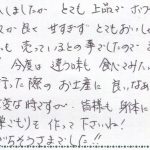 入しましたが とても 上品で
が良く 甘すぎず とてもおいし
も 売っているとの事でしたので
今度は 違う味も 食べてみた
行った際の お土産に 良いなあ
変な時ですが 皆様も 身体に
を作って下さいね!
ちそうさまでした!!